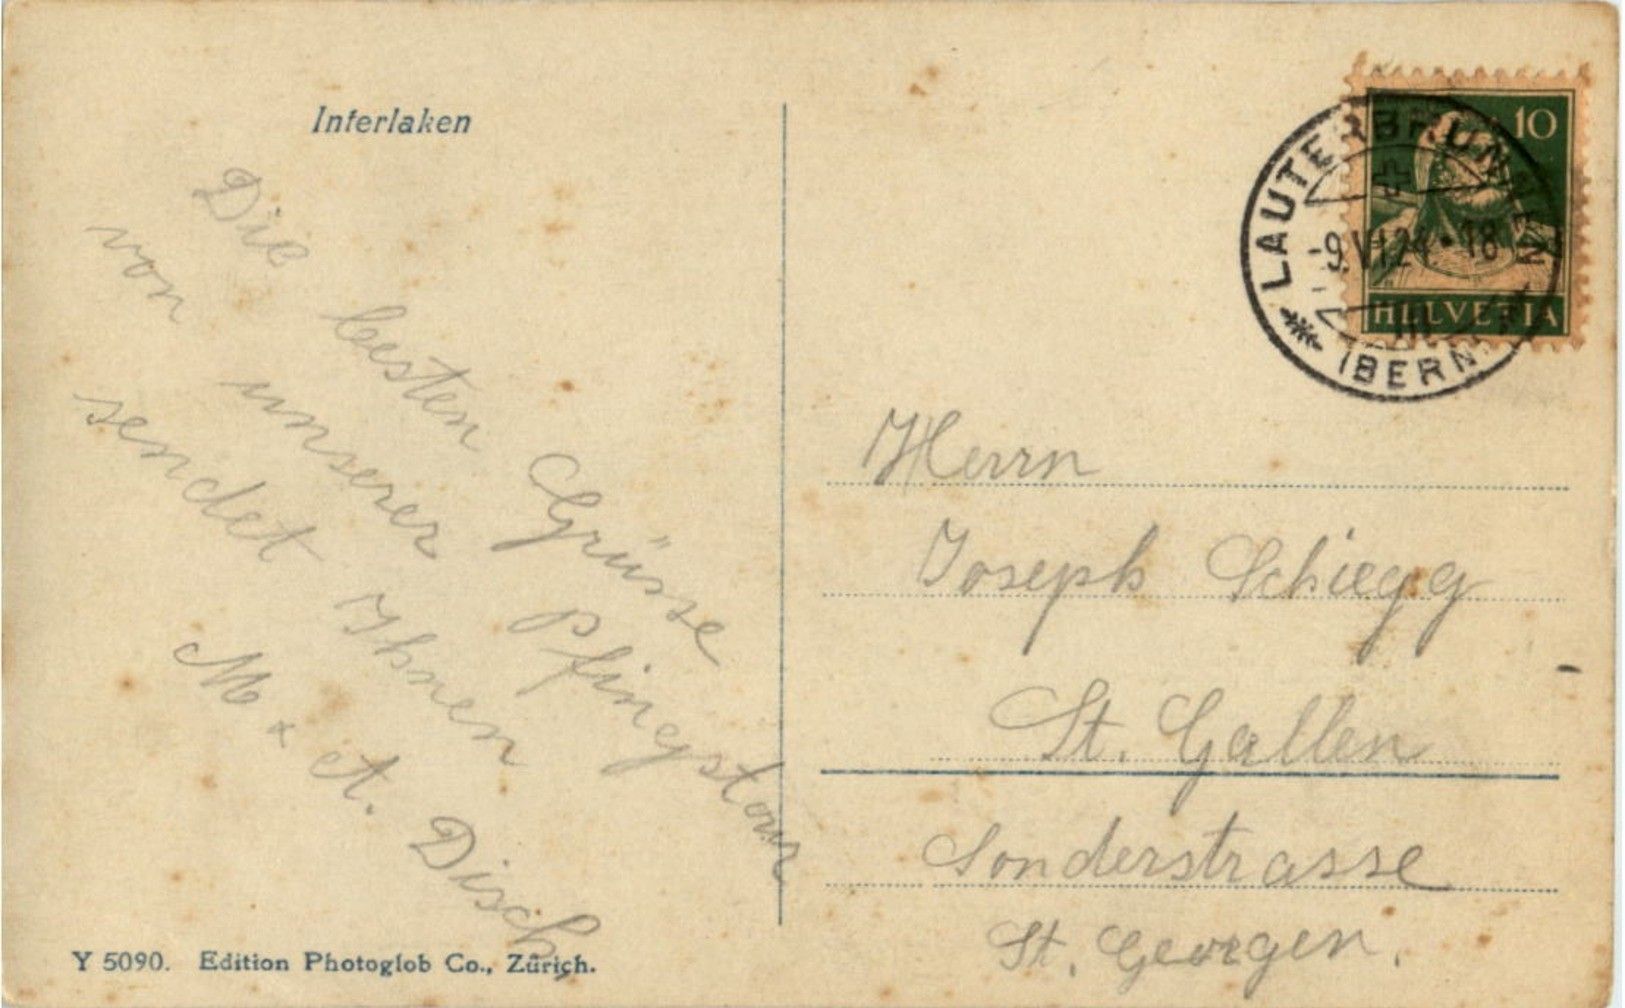 Interlaken
Die besten Grüsse
von unserer Pfingstour
sendet Ihnen
M + A. Disch
Y 5090. Edition Photoglob Co., Zürich.
10
HELVETIA
LAUTERBRUNNEN
-9.VI.24.-18
(BERN)
Herrn
Joseph Schiegg
St. Gallen
Sonderstrasse
St. Georgen.